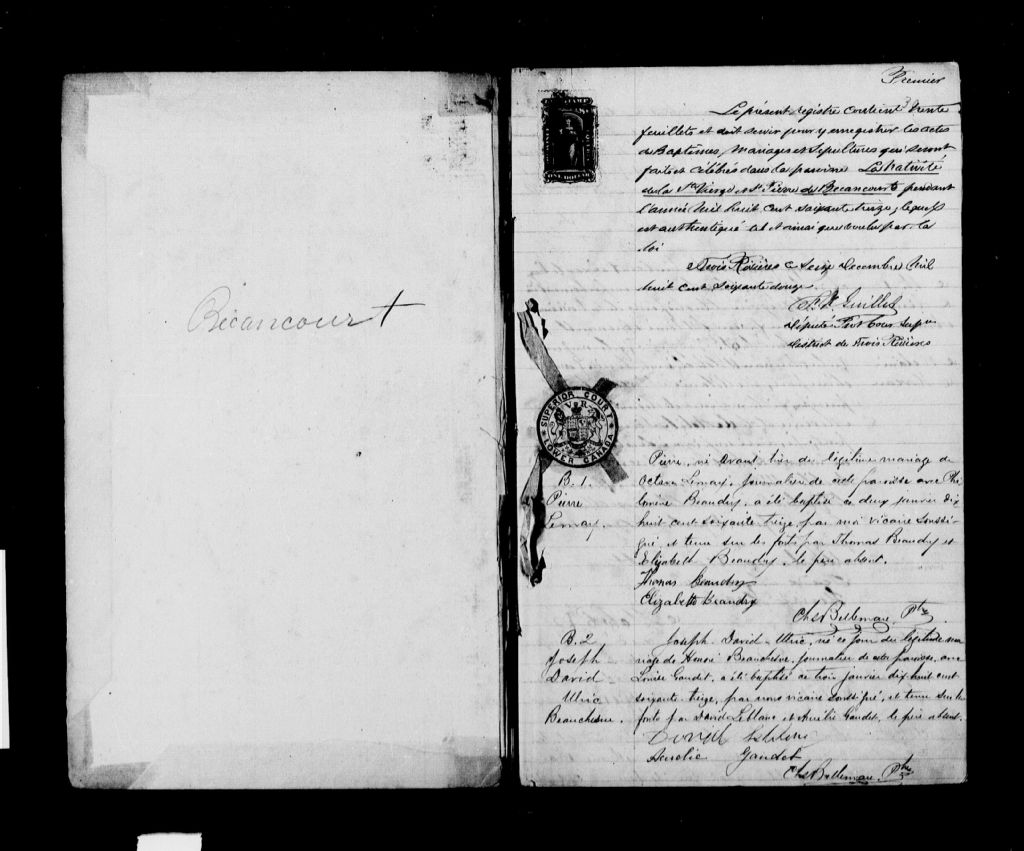 Bécancourt
Premier
ONE DOLLAR
Le présent registre contient trente
feuillets et doit servir pour y enregistrer les actes
de Baptêmes, Mariages et Sépultures qui seront
faits et célébrés dans la paroisse La Nativité
de la Ste Vierge et St Pierre de Becancourt pendant
l'année Mil huit cent soixante treize, lequel
est authentiqué tel et ainsi que voulu par la
loi
Trois Rivières ce Seize Decembre Mil
huit cent soixante douze
Guillet
Député Prot Cour Supre
District de Trois Rivières
SUPERIOR COURT
V R
LOWER CANADA
B. 1.
Pierre
Lemay.
Pierre, né avant hier de légitime mariage de
Octave Lemay, journalier de cette paroisse avec Phi
lomène Beaudry, a été baptisé ce deux janvier dix
huit cent soixante treize, par moi vicaire soussi-
gné, et tenu sur les fonts par Thomas Beaudry et
Elizabeth Beaudry, le père absent.
Thomas Beaudry
Elizabeth Beaudry
Chs Bellemare, Ptre
B. 2
Joseph
David
Ulric
Beauchesne.
Joseph David Ulric, né ce jour du légitime ma
riage de Honoré Beauchesne, journalier de cette paroisse, avec
Louise Gaudet, a été baptisé ce trois janvier dix huit cent
soixante treize, par nous vicaire soussigné, et tenu sur les
fonts par David Leblanc et Aurélie Gaudet, le père absent.
Aurelie Gaudet
Chs Bellemare, Ptre